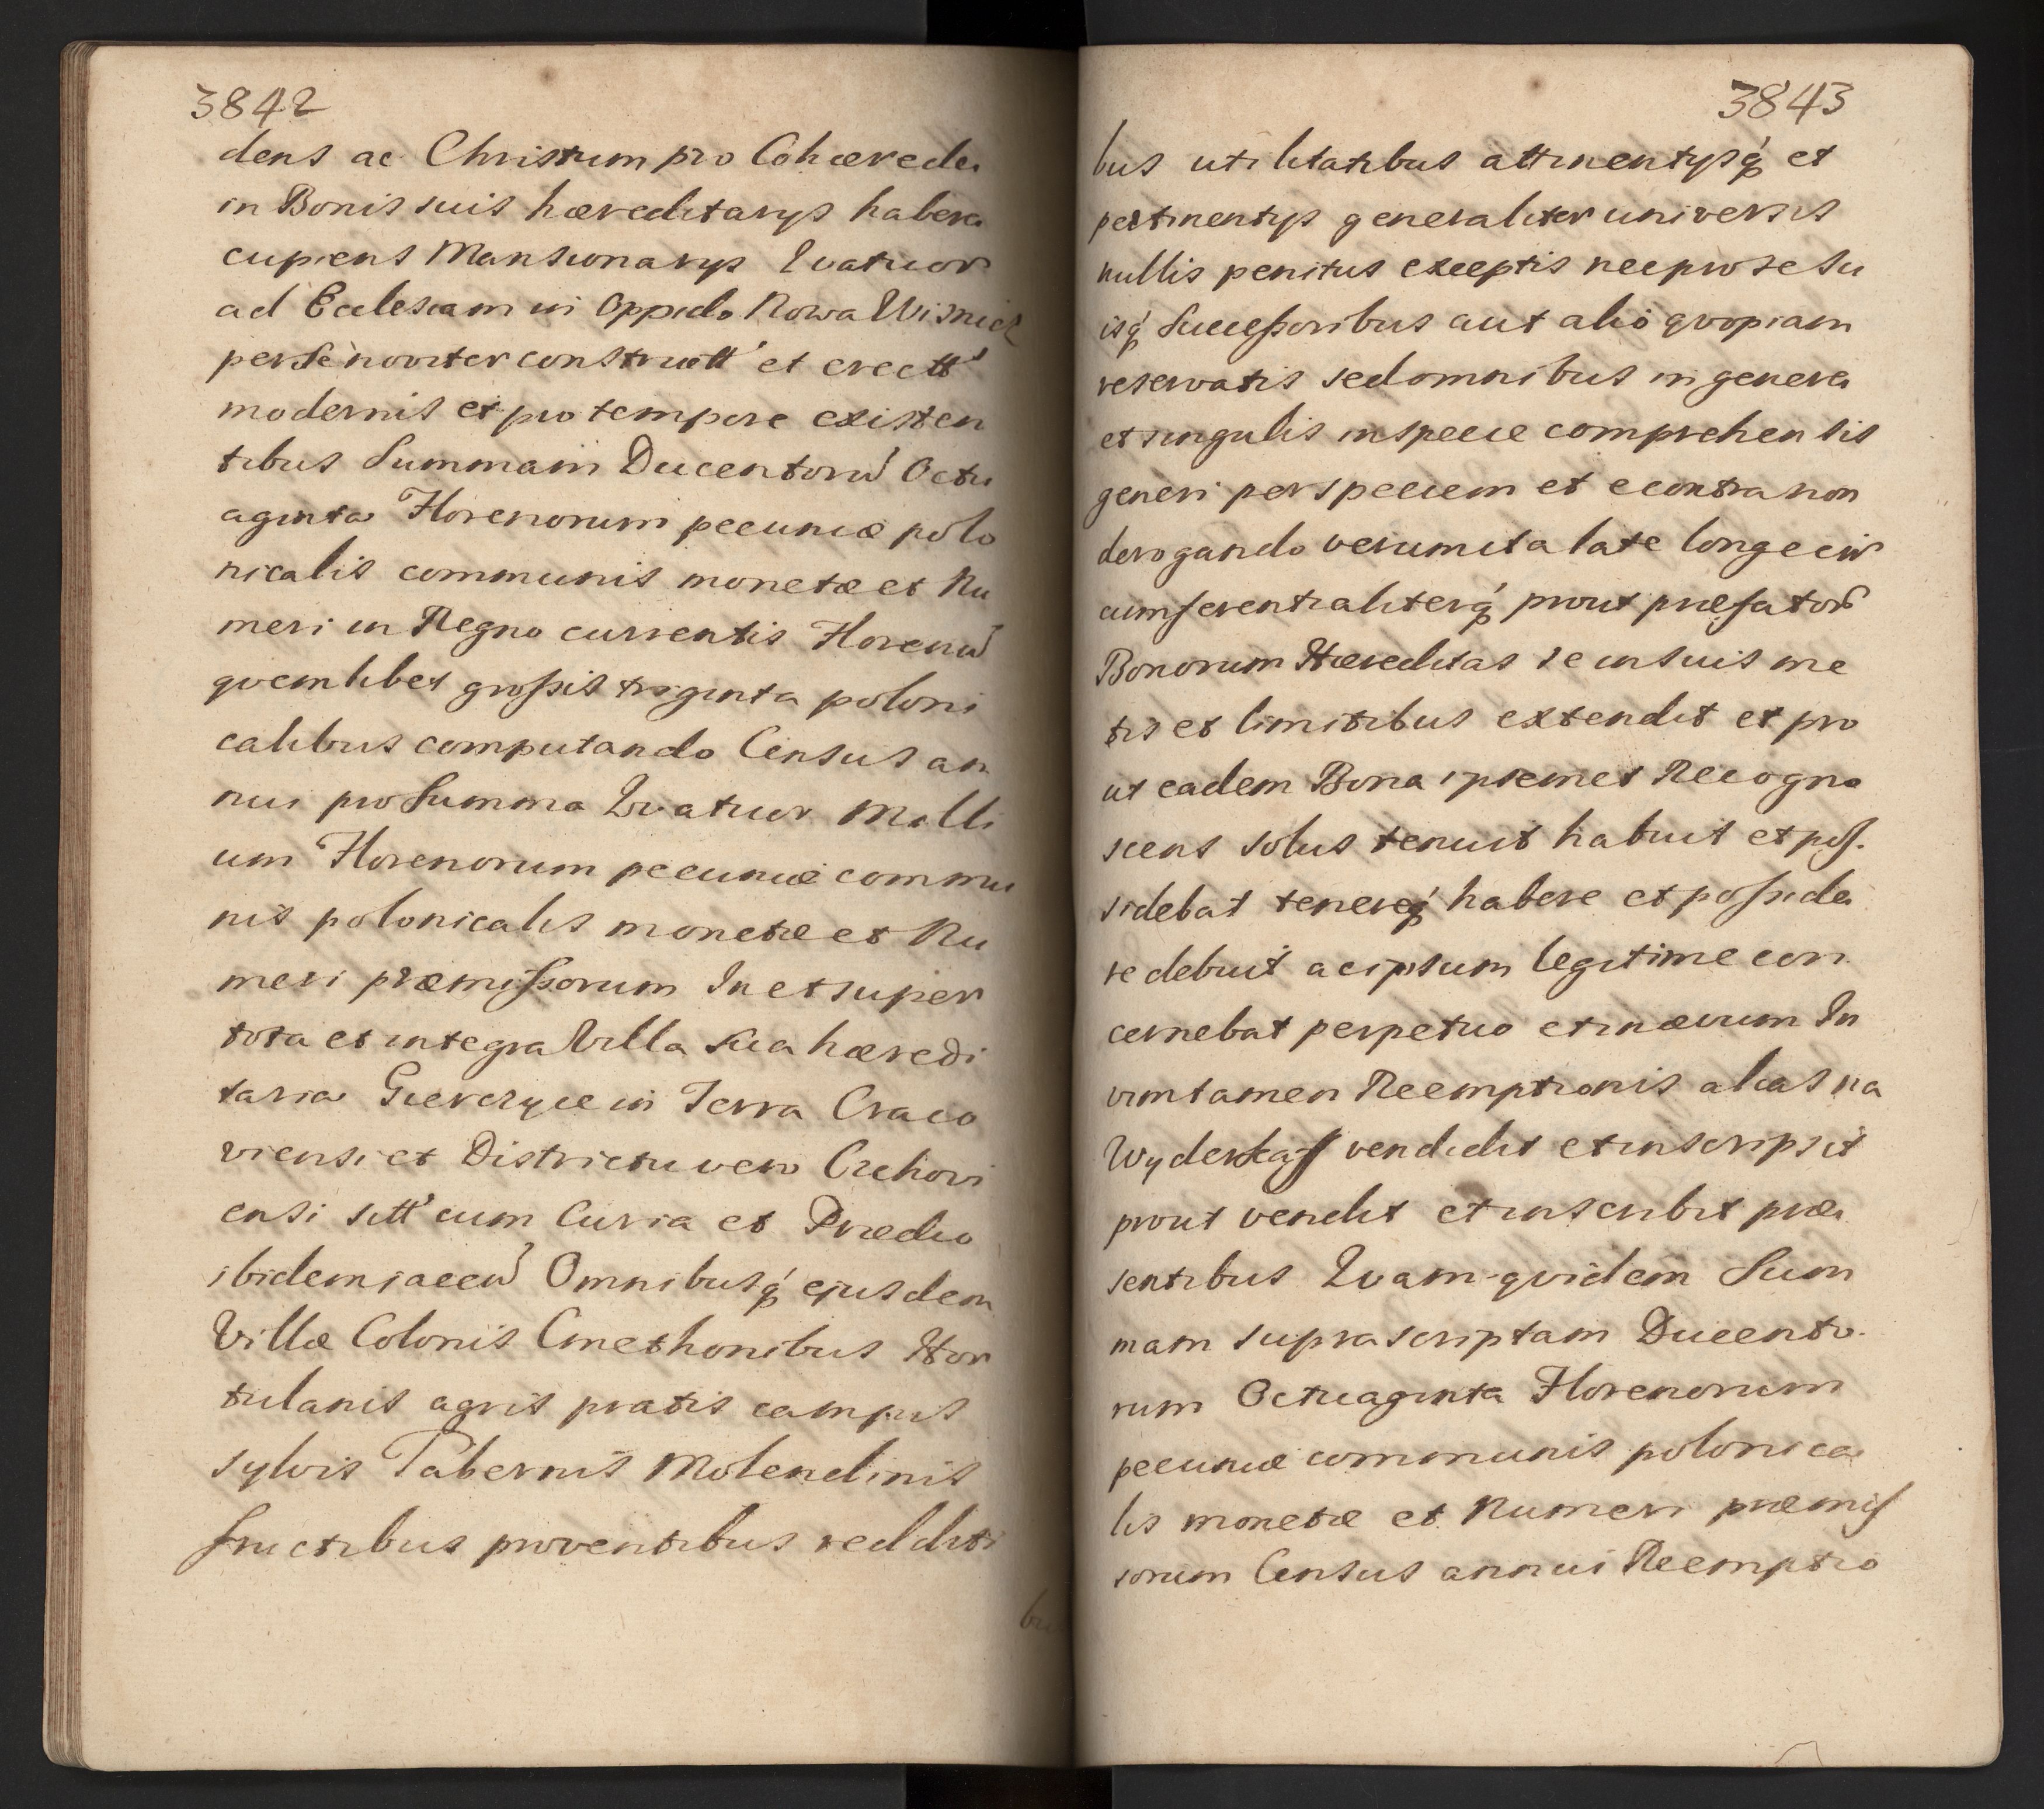 3842
dens ac Christum pro Cohærede
in Bonis suis hæreditarys habere
cupiens Mansionarys Quatuor
ad Ecclesiam in Oppido Nowa Wisnicz
per Se noviter constructt' et erectt'
modernis et pro tempore existen
tibus Summam Ducentorũ Octu
aginta Florenorum pecuniæ polo
nicalis communis monetæ et Nu
meri in Regno currentis Florenũ
qvemlibet grossis triginta poloni
calibus computando Census an
nui pro Summa Quatuor Milli
um Florenorum pecuniæ commu
nis polonicalis monetæ et Nu
meri præmissorum In et super
tota et integra Villa sua hæredi
taria in Terra Craco
viensi et Districtu vero Czchovi
ensi sitt' cum Curia et Prædio
ibidem jaceñ Omnibusq́ ejusdem
Villæ Colonis Cmethonibus Hor
tulanis agris pratis campis
sylvis Tabernis Molendinis
fructibus proventibus redditi
bus
3843
bus utilitatibus attinentysq́ et
pertinentys generaliter universis
nullis penitus exceptis nec pro se Su
isq́ Successoribus aut alio qvopiam
reservatis sed omnibus in genere
et singulis in specie comprehensis
generi per speciem et econtra non
derogando verum ita late longe cir
cumferentialiterq́ prout præfator̃
Bonorum Hæreditas se in suis me
tis et limitibus extendit et pro
ut eadem Bona ipsemet Recogno
scens solus tenuit habuit et pos
sidebat tenereq́ habere et posside
re debuit ac ipsum legitime con
cernebat perpetuo et in ævum In
vim tamen Reemptionis alias na
Wyderkaff vendidit et inscripsit
prout vendit et inscribit præ
sentibus Quam qvidem Sum
mam suprascriptam Ducento
rum Octuaginta Florenorum
pecuniæ communis polonica
lis monetæ et Numeri præmis
sorum Census annui Reemptio